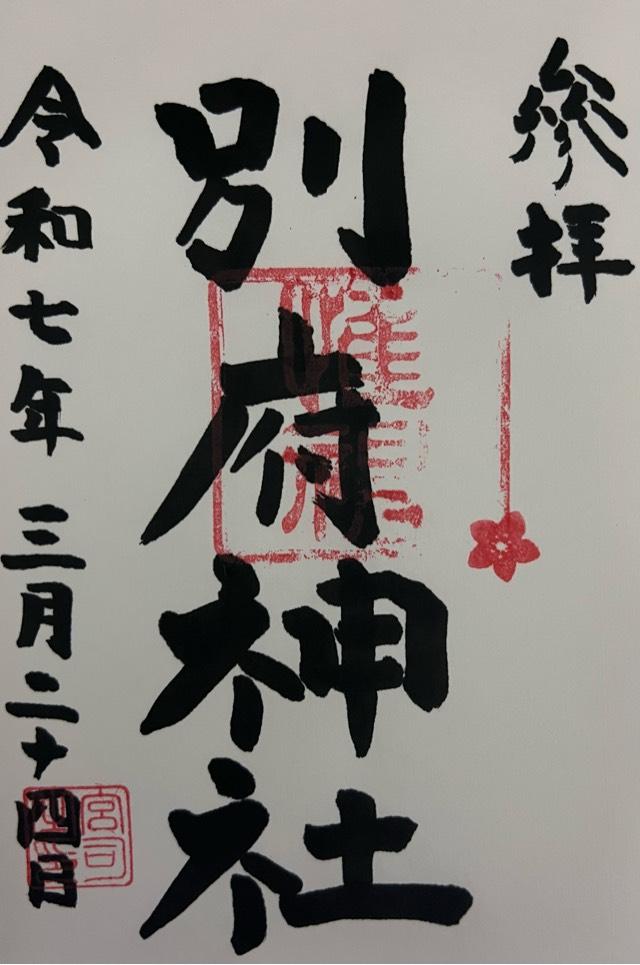 參拜
別府神社
令和七年 三月二十四日
宮司